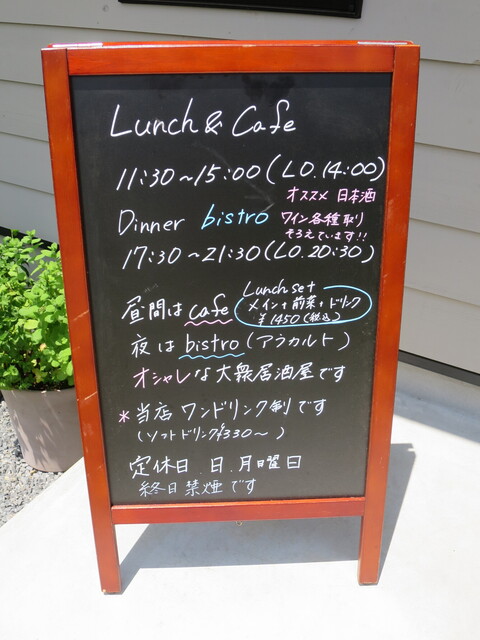 Lunch & Cafe
11:30～15:00(LO.14:00)
オススメ 日本酒
Dinner bistro ワイン各種取り
そろえています!!
17:30～21:30(LO.20:30)
Lunch set
昼間は cafe メイン+前菜+ドリンク
¥1450(税込)
夜は bistro (アラカルト)
オシャレな大衆居酒屋です
*当店 ワンドリンク制です
(ソフトドリンク¥330～)
定休日 日.月曜日
終日禁煙です